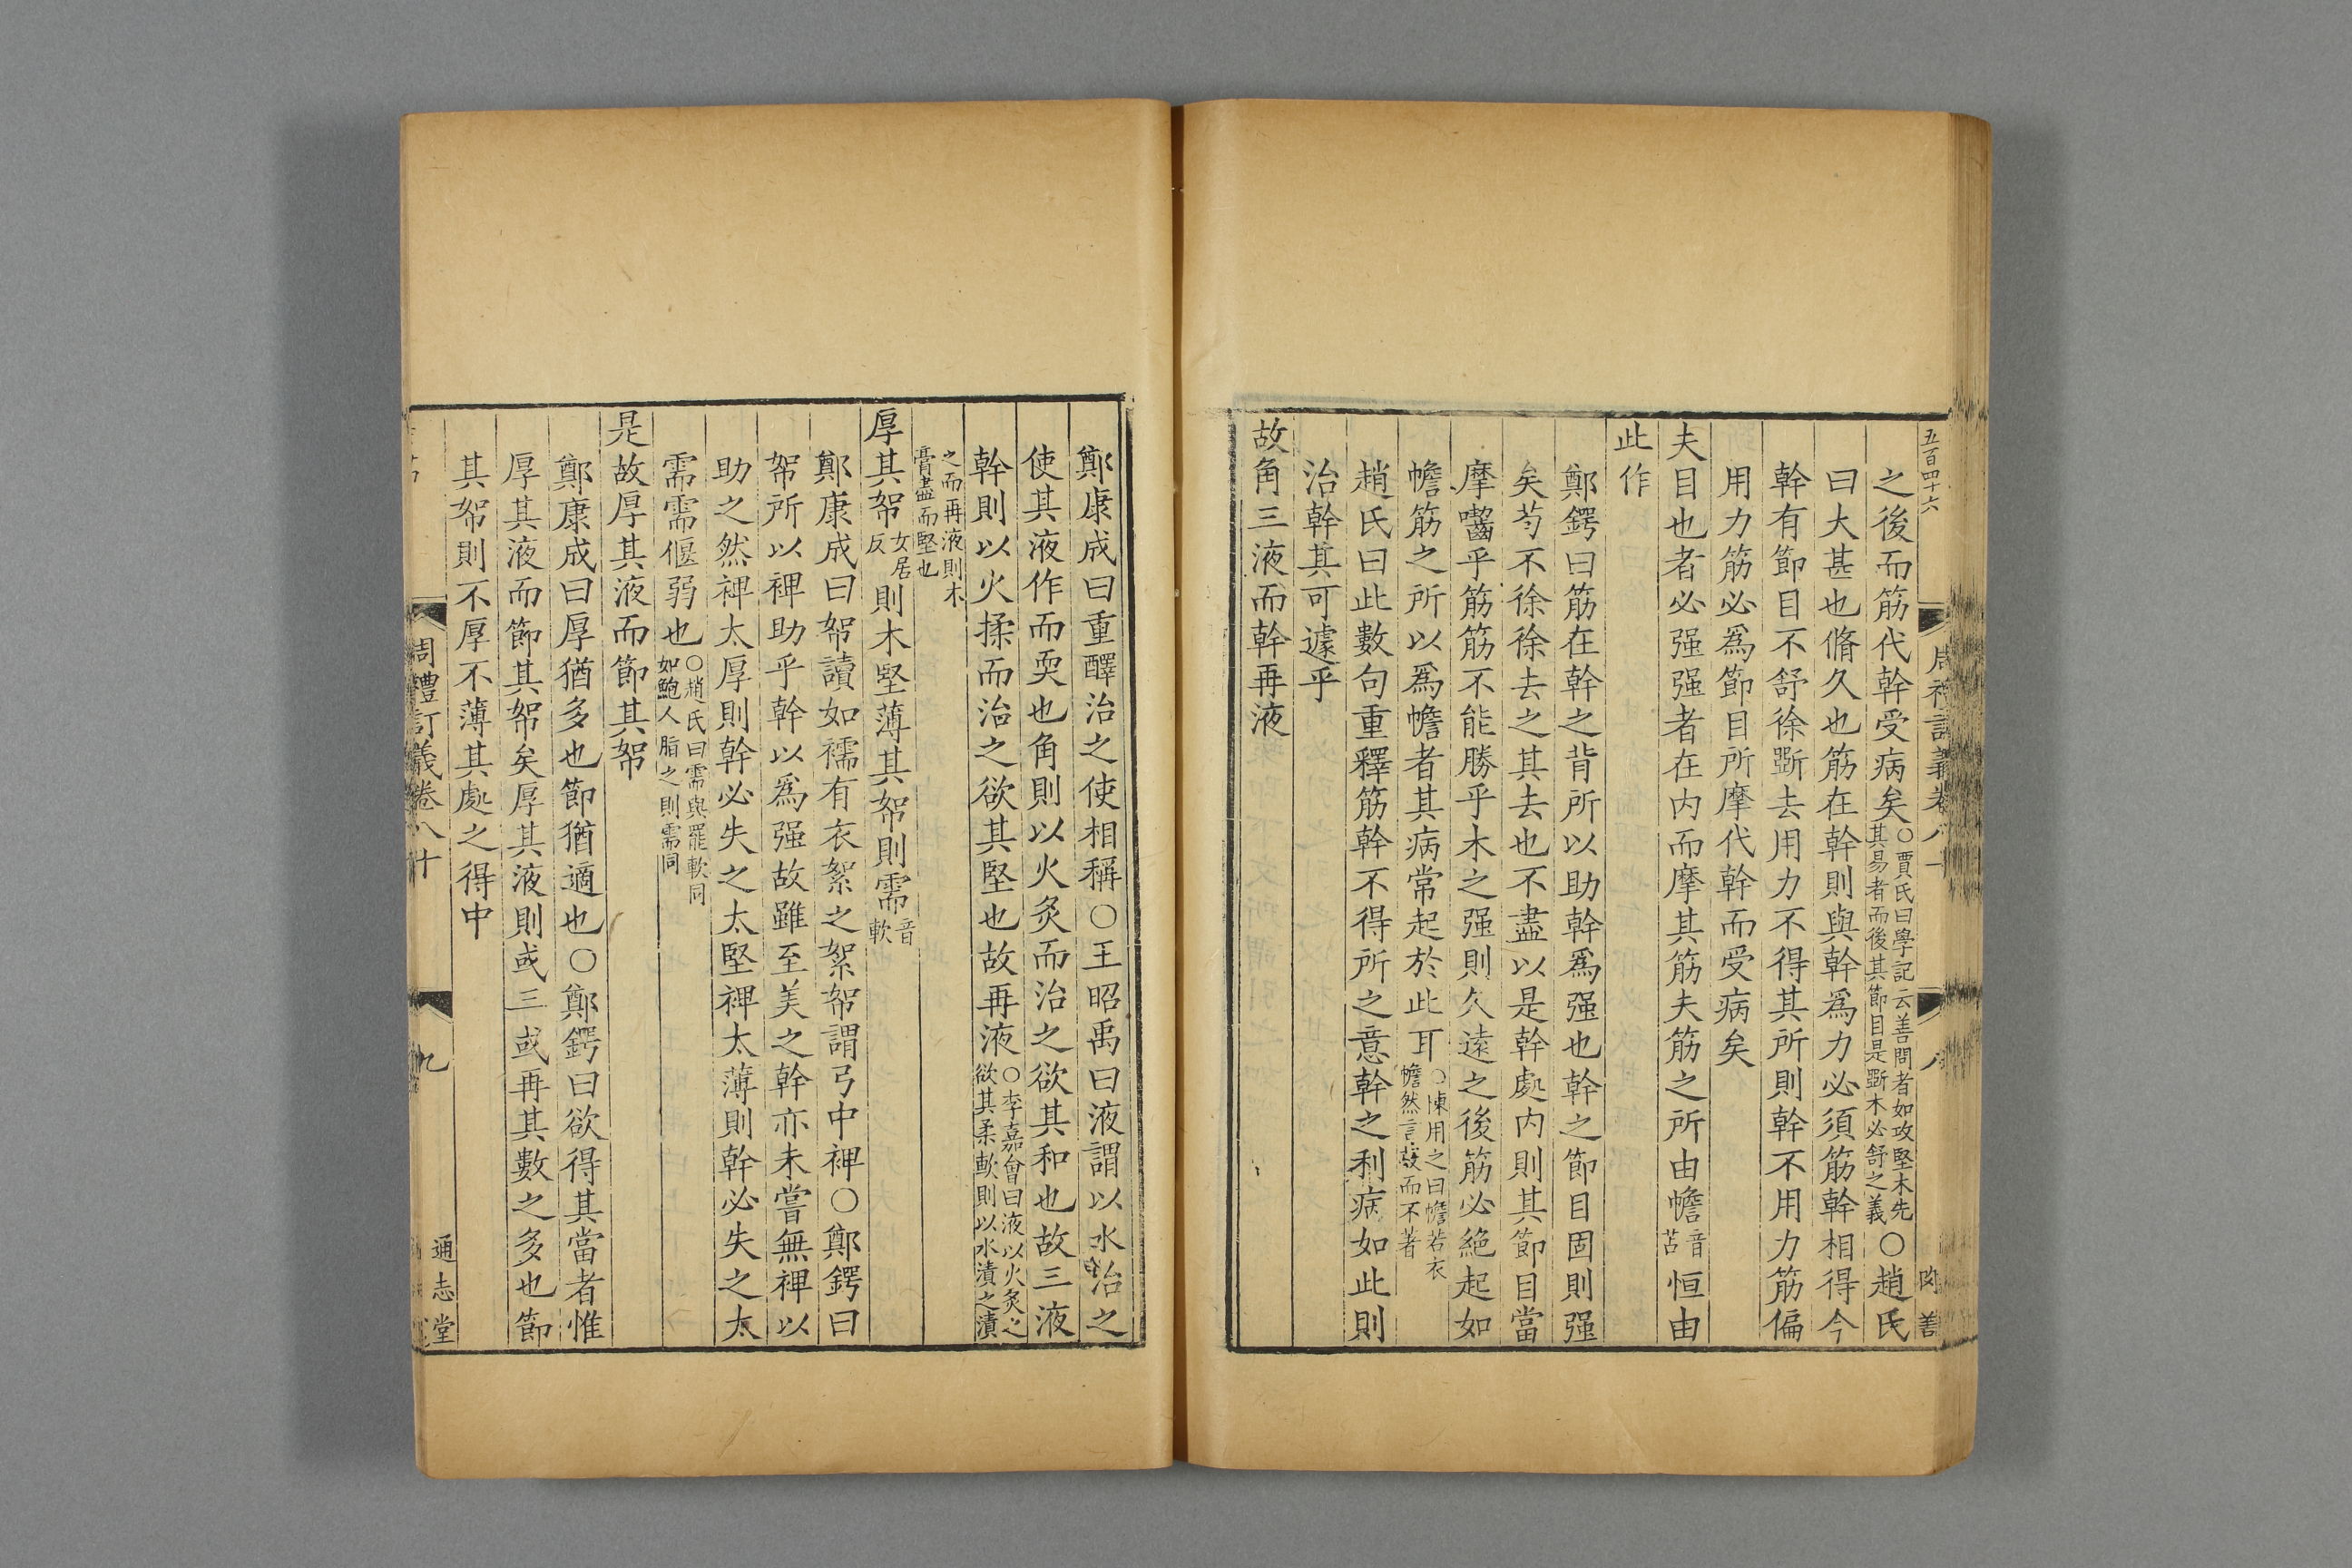 五百四十六
之後而筋代幹受病矣○賈氏曰學記云善問者如攻堅木先其易者而後其節目是斲木必舒之義○趙氏
曰大甚也脩久也筋在幹則與幹爲力必須筋幹相得今
幹有節目不舒徐斲去用力不得其所則幹不用力筋偏
用力筋必爲節目所摩代幹而受病矣
夫目也者必强强者在内而摩其筋夫筋之所由幨音苫恒由
此作
鄭鍔曰筋在幹之背所以助幹爲强也幹之節目固則强
矣芍不徐徐去之其去也不盡以是幹處内則其節目當
摩囓乎筋筋不能勝乎木之强則久遠之後筋必絶起如
幨筋之所以爲幨者其病常起於此耳○陳用之曰幨若衣幨然言㪅而不著
趙氏曰此數句重釋筋幹不得所之意幹之利病如此則
治幹其可遽乎
故角三液而幹再液
鄭康成曰重醳治之使相稱○王昭禹曰液謂以水治之
使其液作而耎也角則以火炙而治之欲其和也故三液
幹則以火揉而治之欲其堅也故再液○李嘉會曰液以火炙之欲其柔軟則以水漬之漬
之而再液則木膏盡而堅也
厚其帤女居反則木堅薄其帤則需音軟
鄭康成曰帤讀如襦有衣絮之絮帤謂弓中裨○鄭鍔曰
帤所以裨助乎幹以爲强故雖至美之幹亦未嘗無裨以
助之然裨太厚則幹必失之太堅裨太薄則幹必失之太
需需偃弱也○趙氏曰需與罷軟同如鮑人脂之則需同
是故厚其液而節其帤
鄭康成曰厚猶多也節猶適也○鄭鍔曰欲得其當者惟
厚其液而節其帤矣厚其液則或三或再其數之多也節
其帤則不厚不薄其處之得中
周禮訂義卷八十
九
通志堂